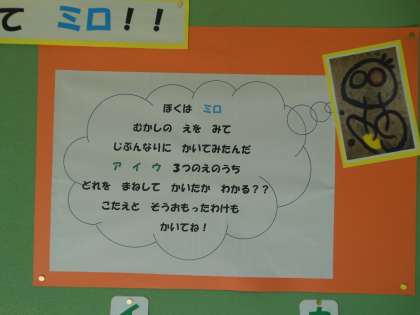 て ミロ!!
ぼくは ミロ
むかしの えを みて
じぶんなりに かいてみたんだ
ア イ ウ 3つのえのうち
どれを まねして かいたか わかる??
こたえと そうおもったわけも
かいてね!
イ